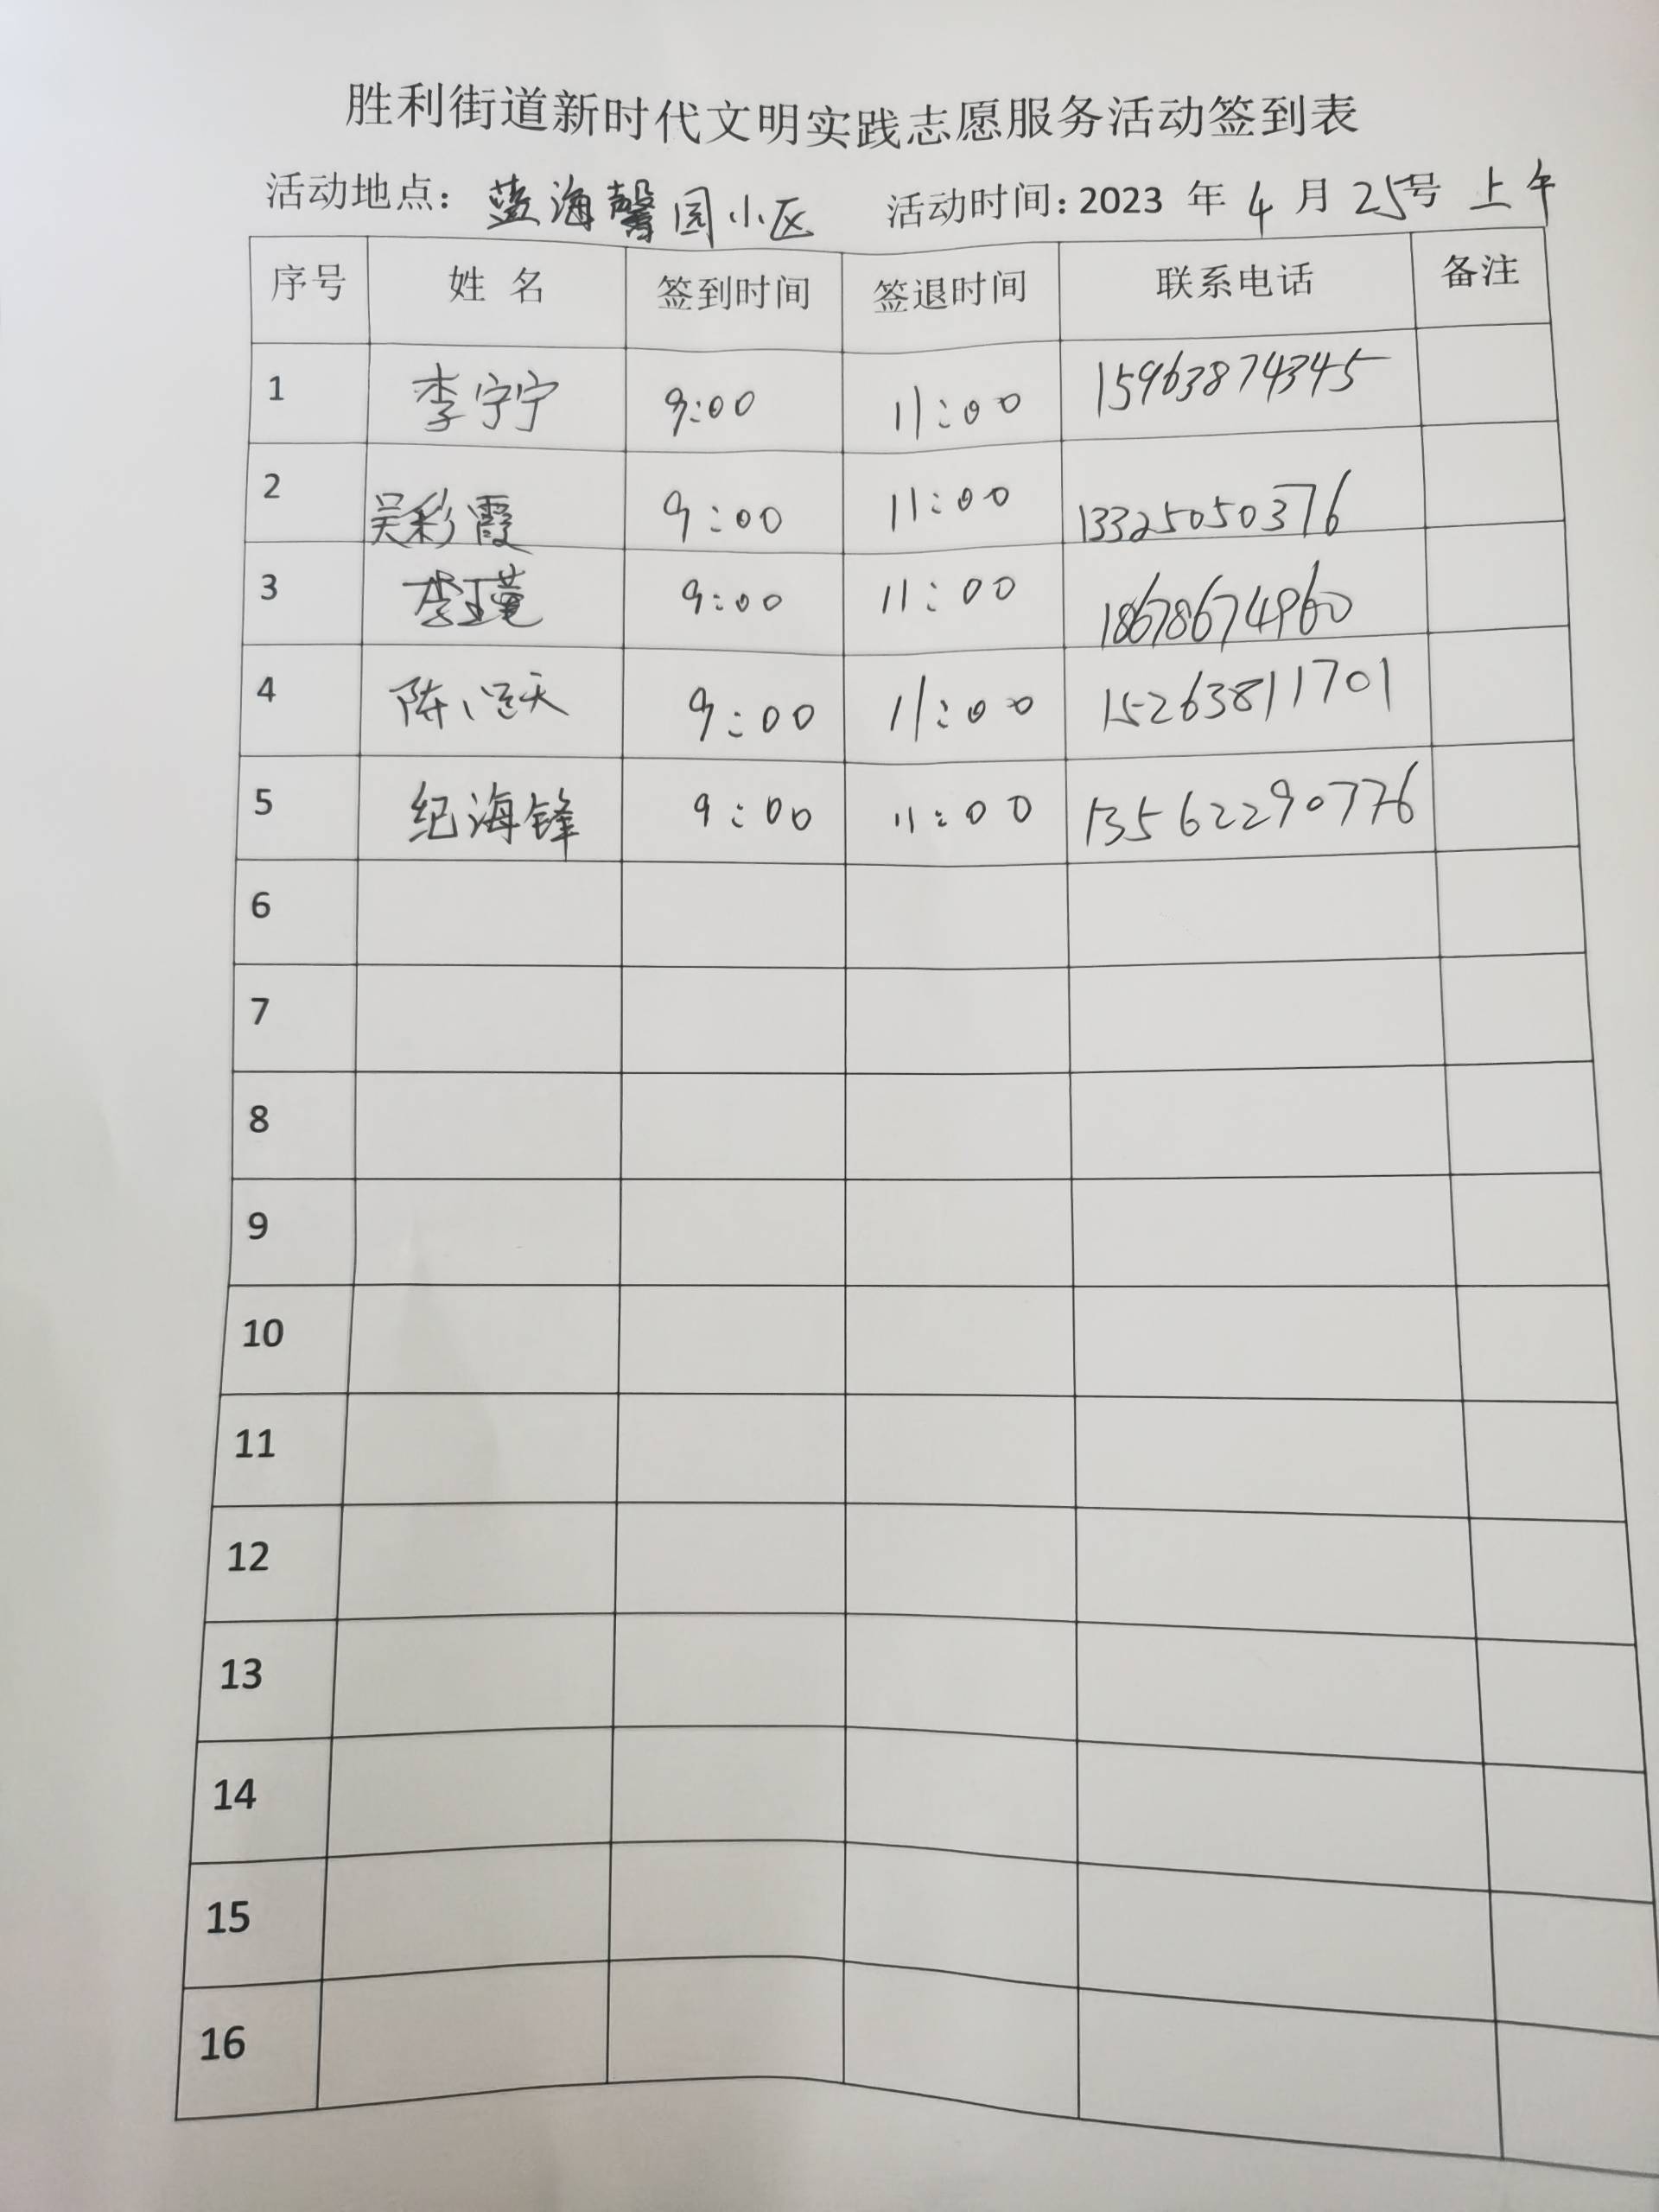 胜利街道新时代文明实践志愿服务活动签到表
活动地点：蓝海馨园小区 活动时间：2023 年 4 月 25号 上午
序号 姓 名 签到时间 签退时间 联系电话 备注
1 李宁宁 9:00 11:00 15963874345
2 吴彩霞 9:00 11:00 13325050376
3 李瑾 9:00 11:00 18678674960
4 陈 9:00 11:00 15263811701
5 纪海锋 9:00 11:00 13562290776
6
7
8
9
10
11
12
13
14
15
16